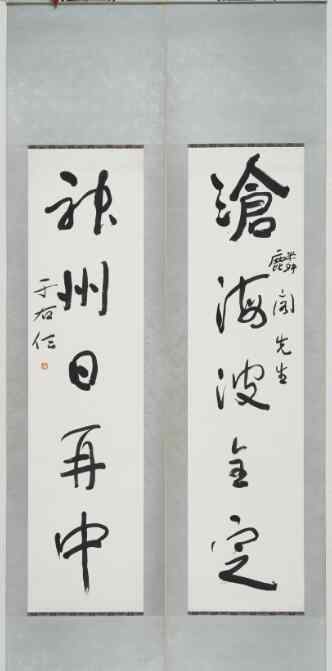 滄海波全定
麟閣先生
神州日再中
于右任